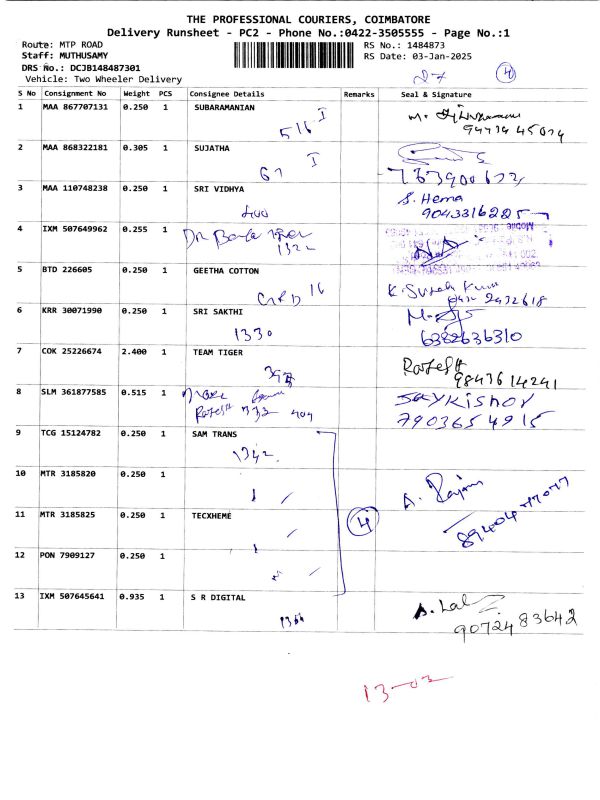 THE PROFESSIONAL COURIERS, COIMBATORE
Delivery Runsheet - PC2 - Phone No.:0422-3505555 - Page No.:1
Route: MTP ROAD RS No.: 1484873
Staff: MUTHUSAMY RS Date: 03-Jan-2025
DRS No.: DCJB148487301
Vehicle: Two Wheeler Delivery 4
S No Consignment No Weight PCS Consignee Details Remarks Seal & Signature
1 MAA 867707131 0.250 1 SUBARAMANIAN
516 I
2 MAA 868322181 0.305 1 SUJATHA
I
3 MAA 110748238 0.250 1 SRI VIDHYA S. Hema
4 IXM 507649962 0.255 1
Dr 1322
5 BTD 226605 0.250 1 GEETHA COTTON
16 K. Suresh Kumar
6 KRR 30071990 0.250 1 SRI SAKTHI
1330 6382636310
7 COK 25226674 2.400 1 TEAM TIGER Rajesh
9843614241
8 SLM 361877585 0.515 1 JAYKISHOR
Rajesh 332 404 7903654915
9 TCG 15124782 0.250 1 SAM TRANS
1342
10 MTR 3185820 0.250 1 A. Rajan
11 MTR 3185825 0.250 1 TECXHEME 4
12 PON 7909127 0.250 1
13 IXM 507645641 0.935 1 S R DIGITAL A. Lal
9072483642
13-02